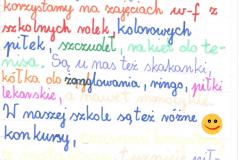 korzystamy na zajęciach w-f z
szkolnych rolek, kolorowych
piłek, szczudeł, rakiet do te-
nisa. Są u nas też skakanki,
kółka do żonglowania, ringo, piłki
lekarskie, a nawet
W naszej szkole są też różne
konkursy,